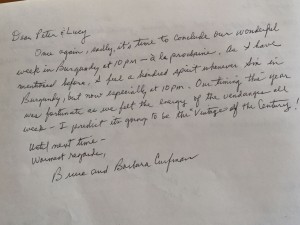 Dear Peter & Lucy
Once again, sadly, it's time to conclude our wonderful
week in Burgundy at 10 pm - à la prochaine. As I have
mentioned before, I feel a kindred spirit whenever I'm in
Burgundy, but now especially at 10 pm. Our timing this year
was fortunate as we felt the energy of the vendanges all
week - I predict it's going to be the "Vintage of the Century"!
Until next time -
Warmest regards,
Bruce and Barbara